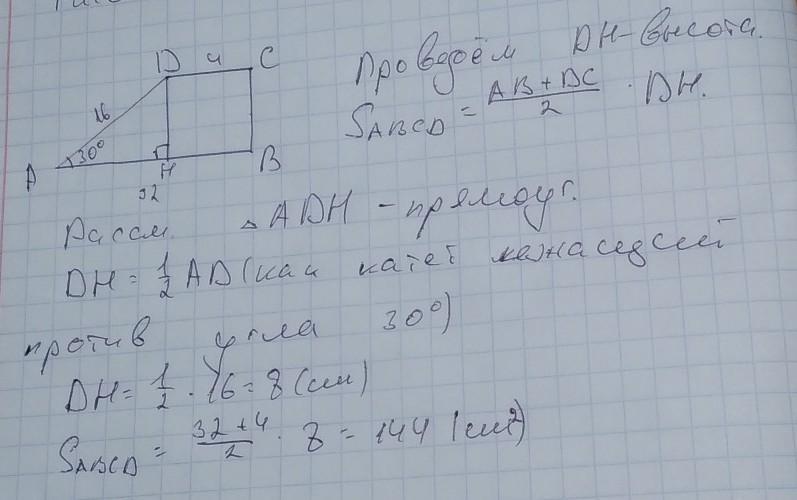 D 4 C
Проведём DH-высота.
16
S ABCD = (AB + DC)/2 · DH.
30°
A H B
32
Рассм. △ADH - прямоуг.
DH = 1/2 AD (как катет лежащий
против угла 30°)
DH = 1/2 · 16 = 8 (см)
S ABCD = (32 + 4)/2 · 8 = 144 (см²)